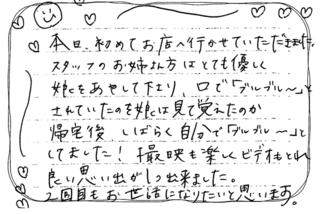 本日、初めてお店へ行かせていただきました。
スタッフのお姉さん方はとても優しく
娘をあやして下さり、口で「ブルブル〜」と
されていたのを娘は見て覚えたのか
帰宅後、しばらく自分で「ブルブル〜」と
してました!撮映も楽しくビデオもとれ
良い思い出が1つ出来ました。
2回目もお世話になりたいと思います。